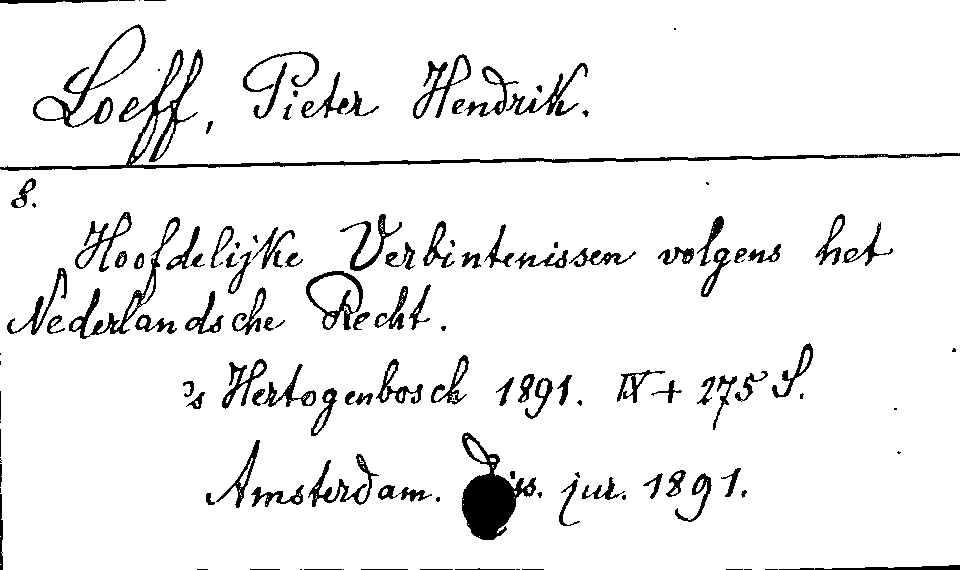 Loeff, Pieter Hendrik.
8.
Hoofdelijke Verbintenissen volgens het
Nederlandsche Recht.
's Hertogenbosch 1891. IX + 275 S.
Amsterdam. Diss. jur. 1891.